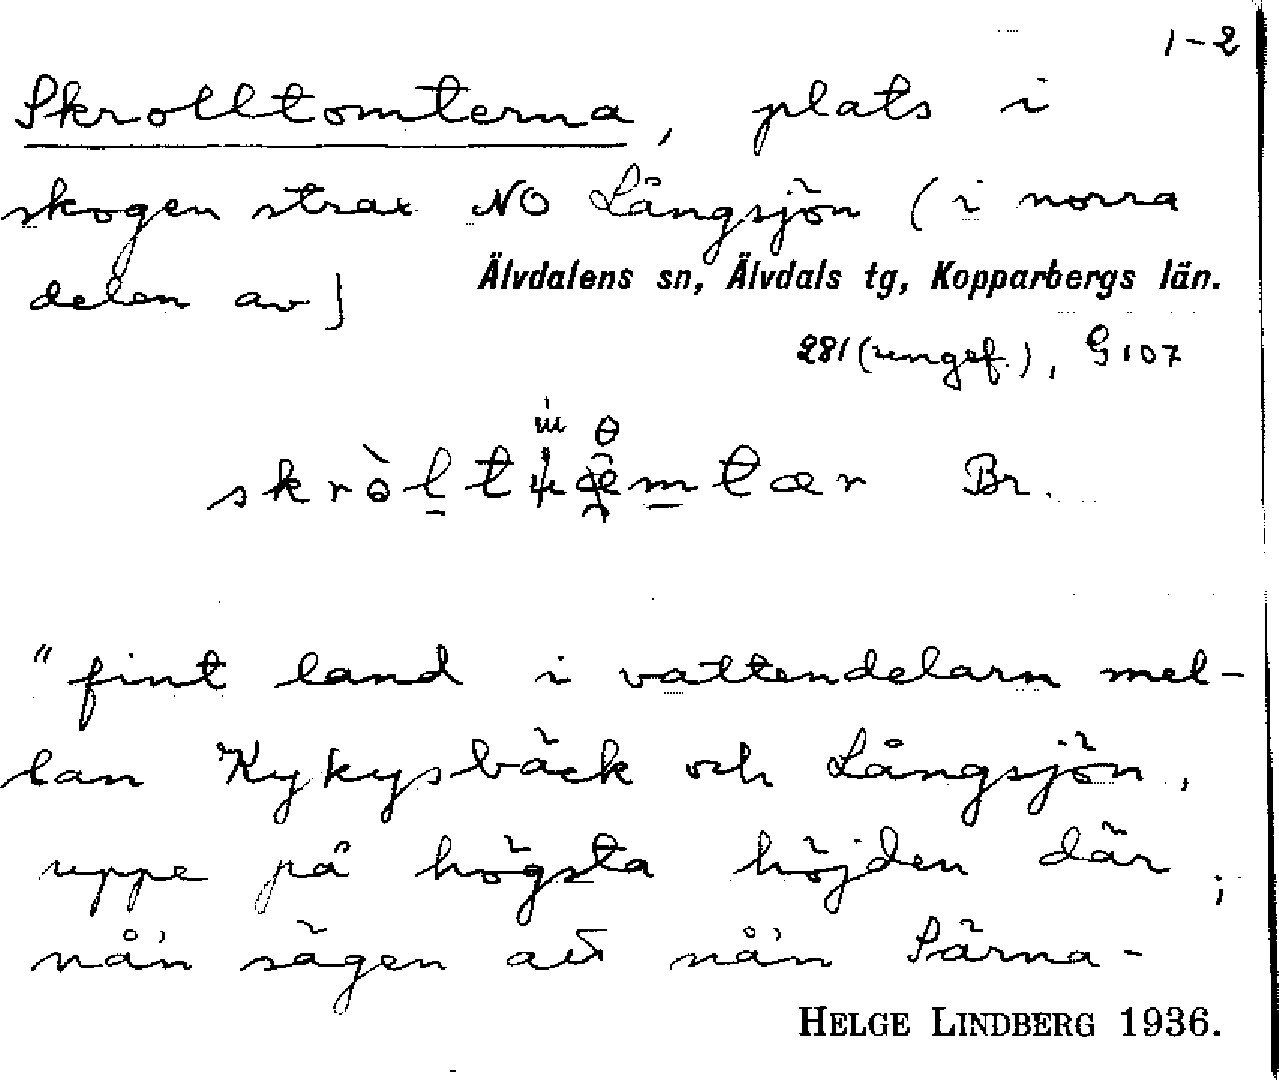 1-2
Skrolltomterna, plats i
skogen strax NO Långsjön (i norra
delen av)
Älvdalens sn, Älvdals tg, Kopparbergs län.
281 (ungef.), G107
Br.
"fint land i vattendelarn mel-
lan Kykysbäck och Långsjön,
uppe på högsta höjden där;
nå'n sägen att nå'n Särna-
HELGE LINDBERG 1936.